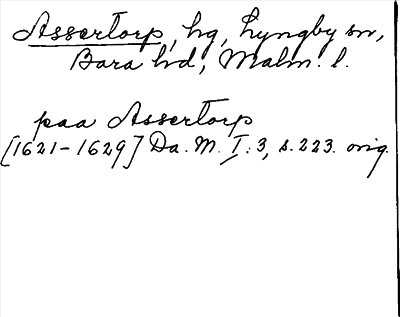 Assertorp, hg, Lyngby sn,
Bara hd, Malm. l.
paa Assertorp
[1621-1629] Da. M. I:3, s. 223. orig.